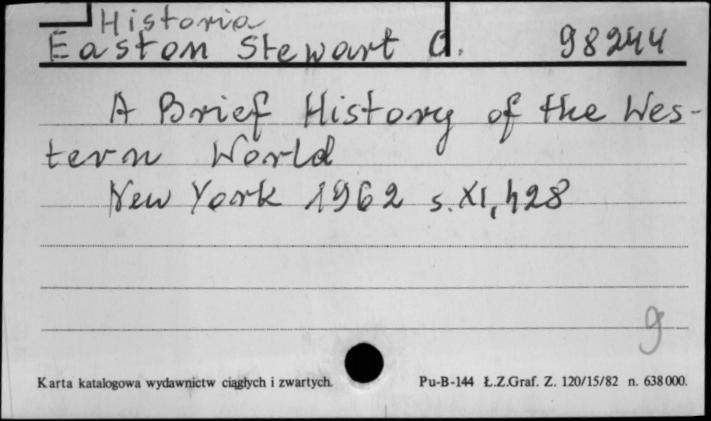 Historia
Easton Stewart C. 98244
A Brief History of the Wes-
tern World
New York 1962 s. XI, 428
9
Karta katalogowa wydawnictw ciągłych i zwartych. Pu-B-144 Ł.Z.Graf. Z. 120/15/82 n. 638000.